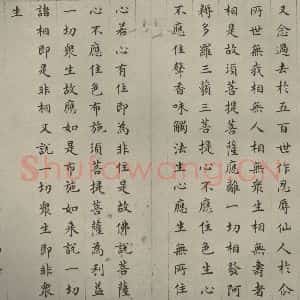 又念過去於五百世作忍辱仙人於尒
所世無我相無人相無衆生相無壽者
相是故須菩提菩薩應離一切相發阿
耨多羅三藐三菩提心不應住色生心
不應住聲香味觸法生心應生無所住
心若心有住即為非住是故佛說菩薩
心不應住色布施須菩提菩薩為利益
一切衆生故應如是布施如来說一切
諸相即是非相又說一切衆生即非衆
生
Shufawang.CN